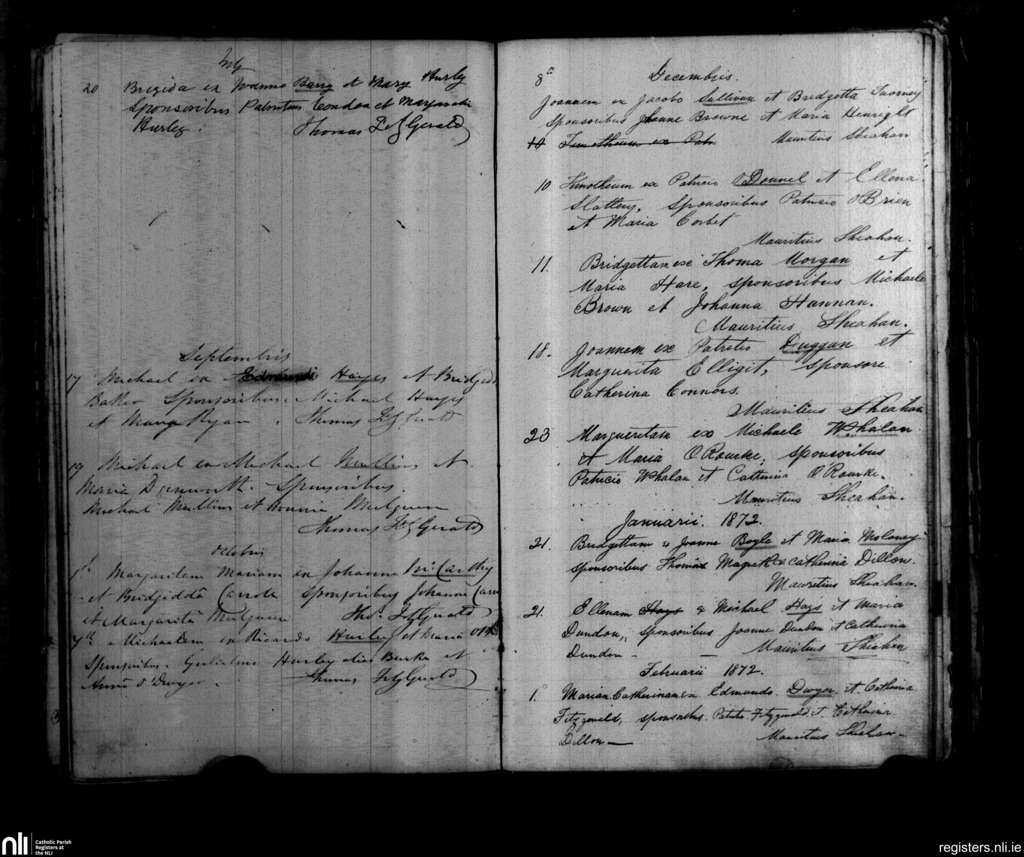 20 Brigida ex Joanne Barry et Mary Hurly
Sponsoribus Patritius Condon et Margarita
Hurley. Thomas FitzGerald
Septembris
17 Michael ex Hayes et Bridget
Baker Sponsoribus Michael Hayes
et Mary Ryan. Thomas FitzGerald
19 Michael ex Michael Mullins et
Maria Sponsoribus
Michael Mullins et Mulqueen
Thomas FitzGerald
Octobris
Margaritam Mariam ex Johanne McCarthy
et Bridgidda Carroll Sponsoribus Johanne
et Margarita Mulqueen Thos. FitzGerald
7th Michaelem ex Ricardo Hurley et Maria
Sponsoribus Gulielmus Hurley alias Burke et
Anna O'Dwyer. Thomas FitzGerald
8th Decembris.
Joannem ex Jacobo Sullivan et Bridgetta
Sponsoribus Joanne Browne et Maria Henright
10 Timotheum ex Patr Mauritius Sheahan
10 Timotheum ex Patricio O'Donnel et Ellena
Slattery, Sponsoribus Patricio O'Brien
et Maria Corbet
Mauritius Sheahan.
11. Bridgettam ex Thoma Morgan et
Maria Hare, Sponsoribus Michaele
Brown et Johanna Hannan.
Mauritius Sheahan.
18. Joannem ex Patritio Duggan et
Margarita Elligit, Sponsore
Catherina Connors.
Mauritius Sheahan
23 Margueritam ex Michaele Whalan
et Maria O'Rourke, Sponsoribus
Patricio Whalan et Catherina O'Rourke.
Mauritius Sheahan.
Januarii. 1872.
21. Bridgettam ex Joanne Boyle et Maria Moloney
Sponsoribus Thomas Magrath et Catherina Dillon.
Mauritius Sheahan.
21. Ellenam Hays ex Michael Hays et Maria
Dundon, Sponsoribus Joanne Dundon et Catherina
Dundon — Mauritius Sheahan
Februarii 1872.
1. Mariam Catherinam ex Edmundo Dwyer et Catherina
Fitzgerald, Sponsoribus Patritio Fitzgerald et Catherina
Dillon — Mauritius Sheahan —
nli
Catholic Parish
Registers at
the NLI
registers.nli.ie